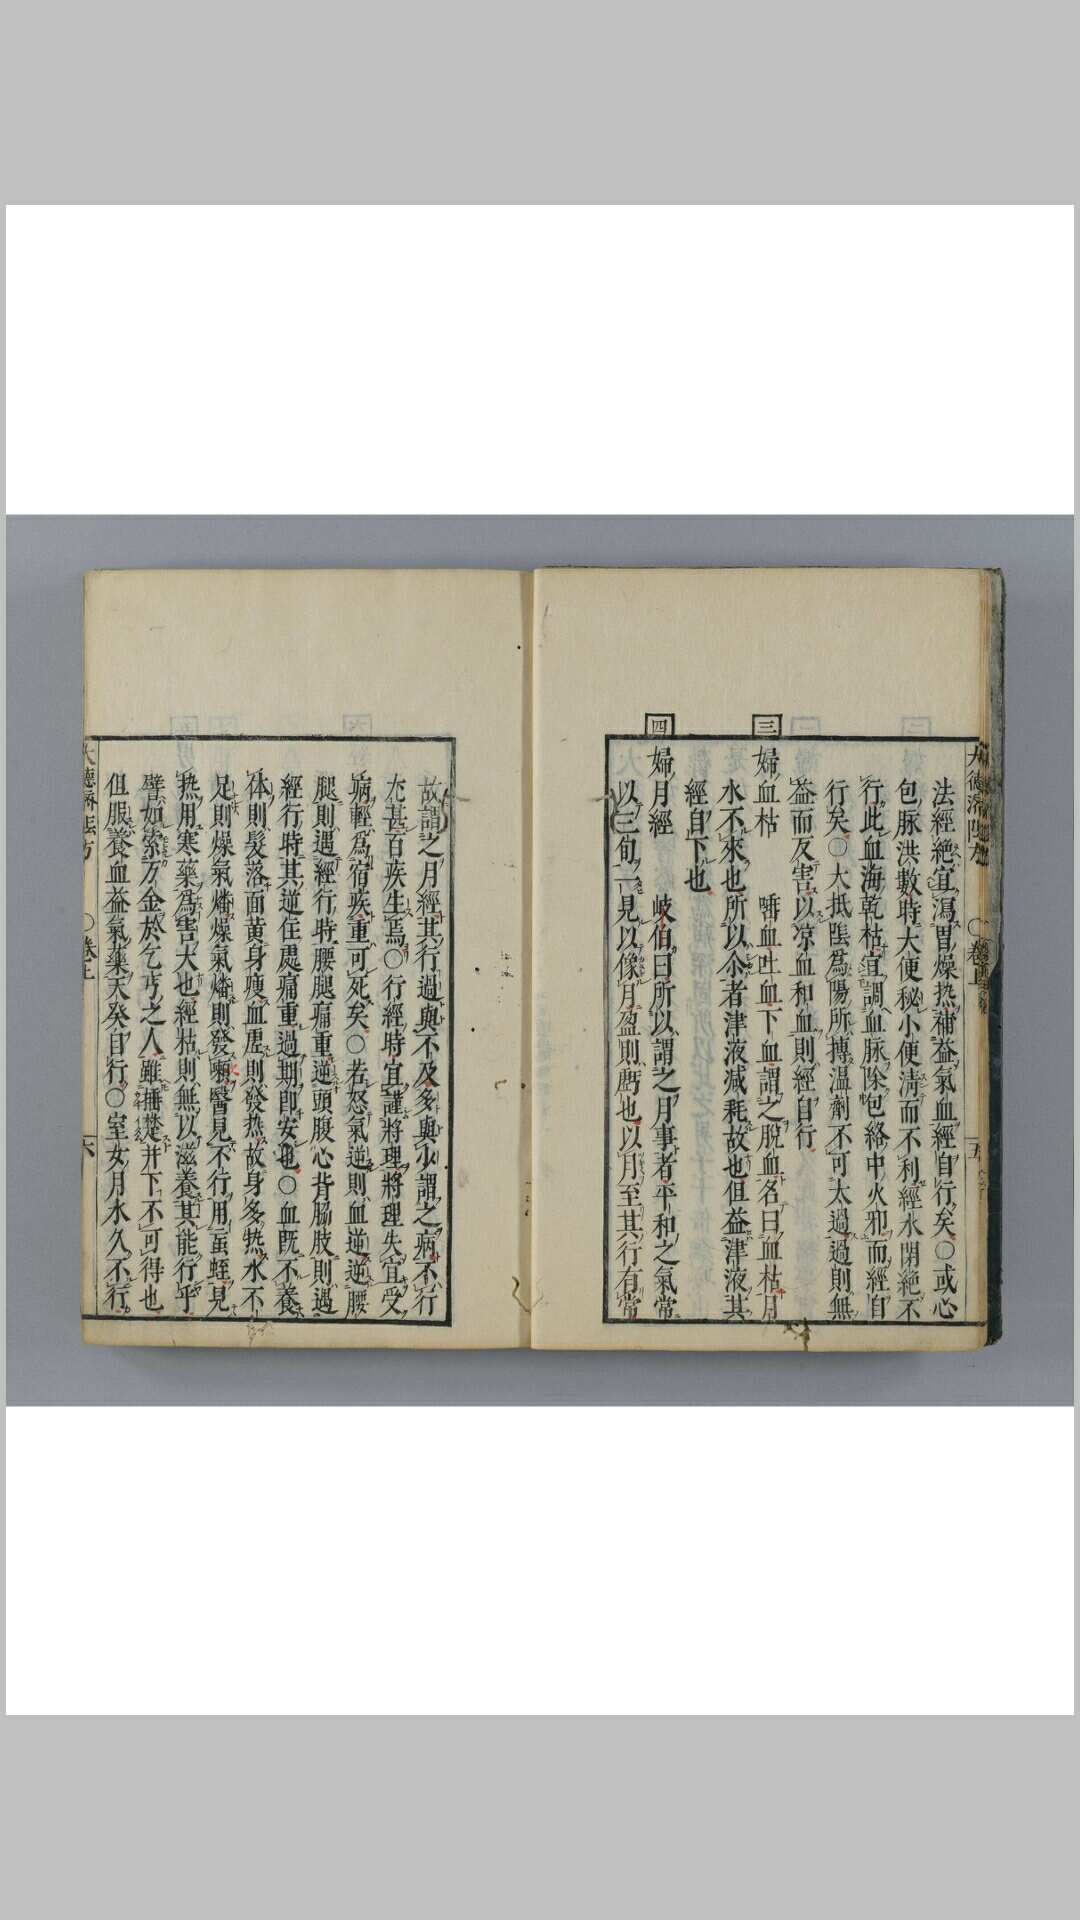 法經絕宜瀉胃燥热補益氣血經自行矣○或心
包脉洪數時大便秘小便淸而不利經水閉絕不
行此血海乾枯宜調血脉除包絡中火邪而經自
行矣○大抵隂爲陽所搏温劑不可太過過則無
益而反害以凉血和血則經自行
三
婦血枯 唾血吐血下血謂之脫血名曰血枯月
水不來也所以尒者津液減耗故也但益津液其
經自下也
四
婦月經 岐伯曰所以謂之月事者平和之氣常
以三旬一見以像月盈則虧也以月至其行有常
故謂之月經其行過與不及多與少謂之病不行
尤甚百疾生焉○行經時宜謹將理將理失宜受
病輕爲宿疾重可死矣○若怒氣逆則血逆逆腰
腿則遇經行時腰腿痛重逆頭腹心背脇肢則遇
經行時其逆住處痛重過期即安也○血既不養
体則髮落面黄身瘦血虛則發热故身多热水不
足則燥氣燔燥氣燔則發 醫見不行用虽蛭見
热用寒藥爲害大也經枯則無以滋養其能行乎
譬如索万金於乞丐之人雖捶楚并下不可得也
但服養血益氣藥天癸自行○室女月水久不行
大德濟隂方 ○卷上 五
大德濟隂方 ○卷上 六